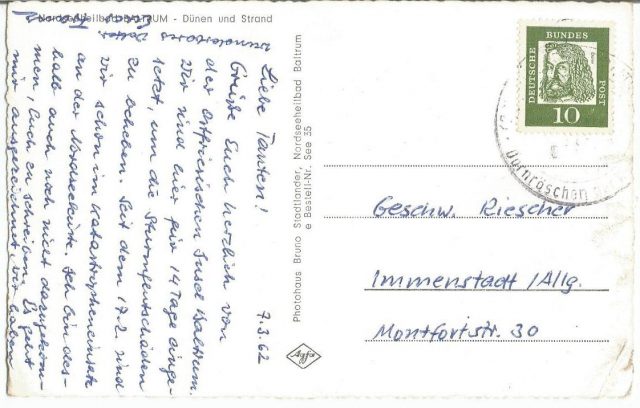 Nordseeheilbad BALTRUM - Dünen und Strand
7.3.62
Liebe Tanten!
Grüße Euch herzlich von
der Ostfriesischen Insel Baltrum.
Wir sind hier für 14 Tage einge-
setzt, um die Sturmflutschäden
zu beheben. Seit dem 17.2. sind
wir schon im Katastropheneinsatz
an der Nordseeküste. Ich bin des-
halb auch noch nicht dazugekom-
men, Euch zu schreiben. Es geht
mir ausgezeichnet, wir haben
wundervolles
Photohaus Bruno Stadtlander, Nordseeheilbad Baltrum
e Bestell-Nr. See 35
Agfa
DEUTSCHE BUNDES POST
Dürer
10
Dornröschen
Geschw. Riescher
Immenstadt / Allg.
Montfortstr. 30